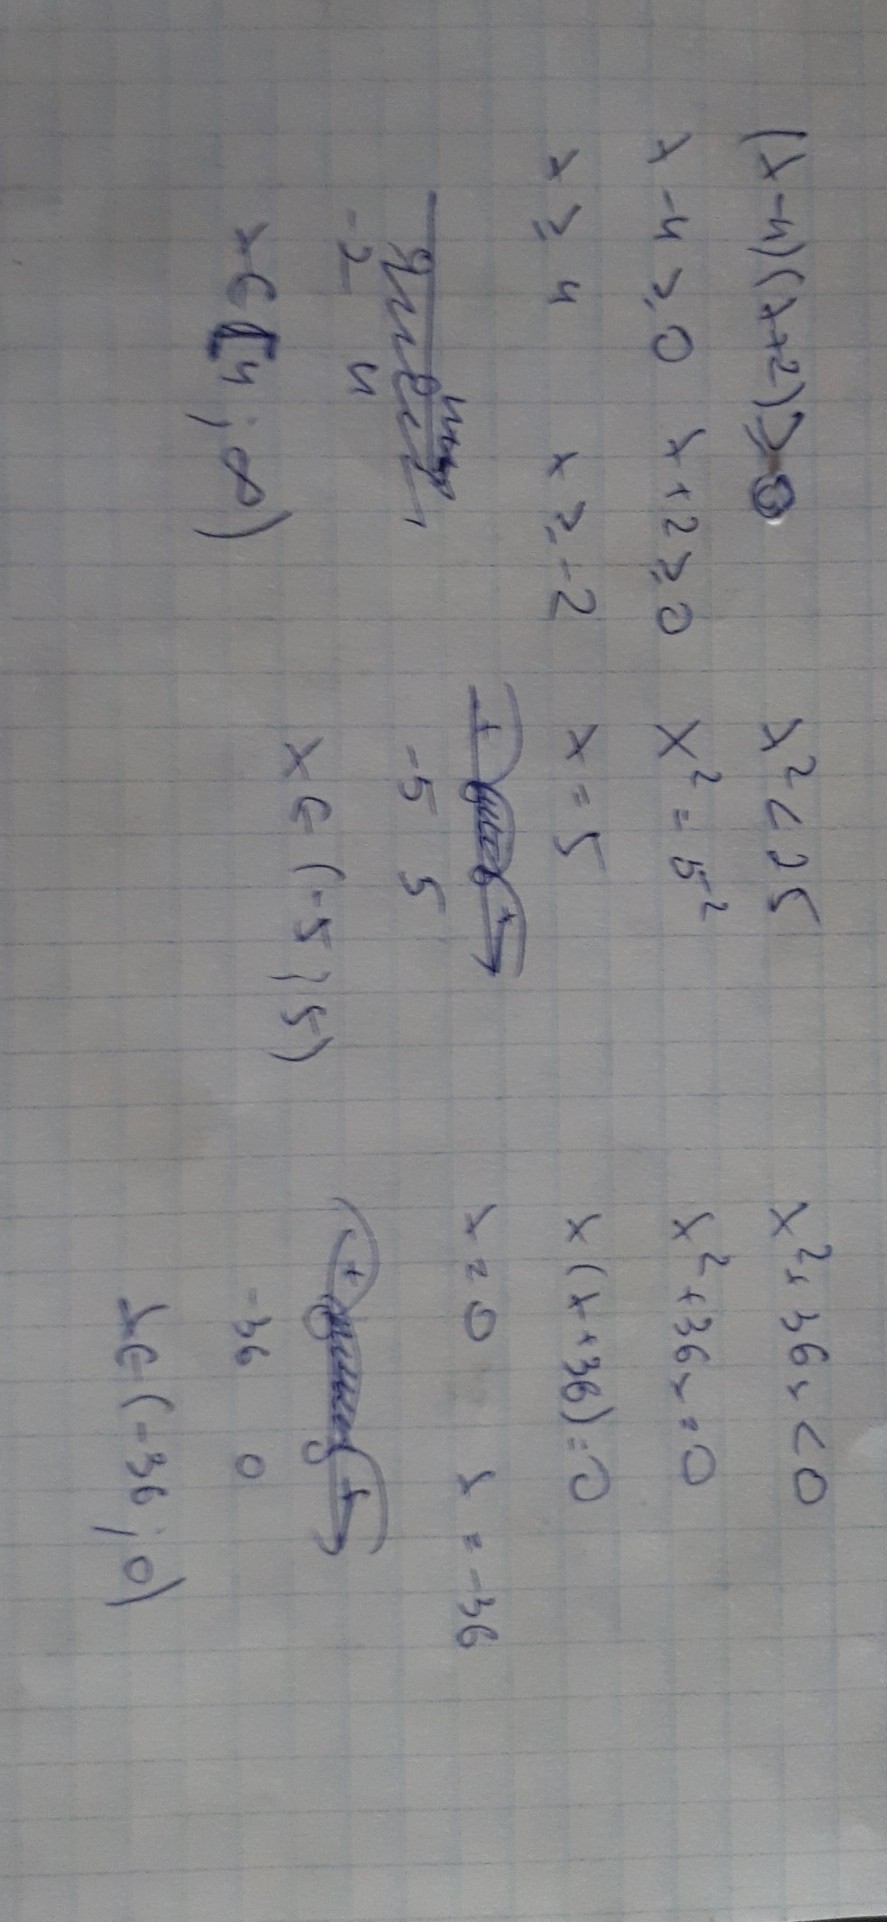 (x-4)(x+2)≥0
x-4≥0 x+2≥0
x≥4 x≥-2
-2 4
x∈[4;∞)
x²<25
x²=5²
x=5
+ +
-5 5
x∈(-5;5)
x²+36x<0
x²+36x=0
x(x+36)=0
x=0 x=-36
+ +
-36 0
x∈(-36;0)